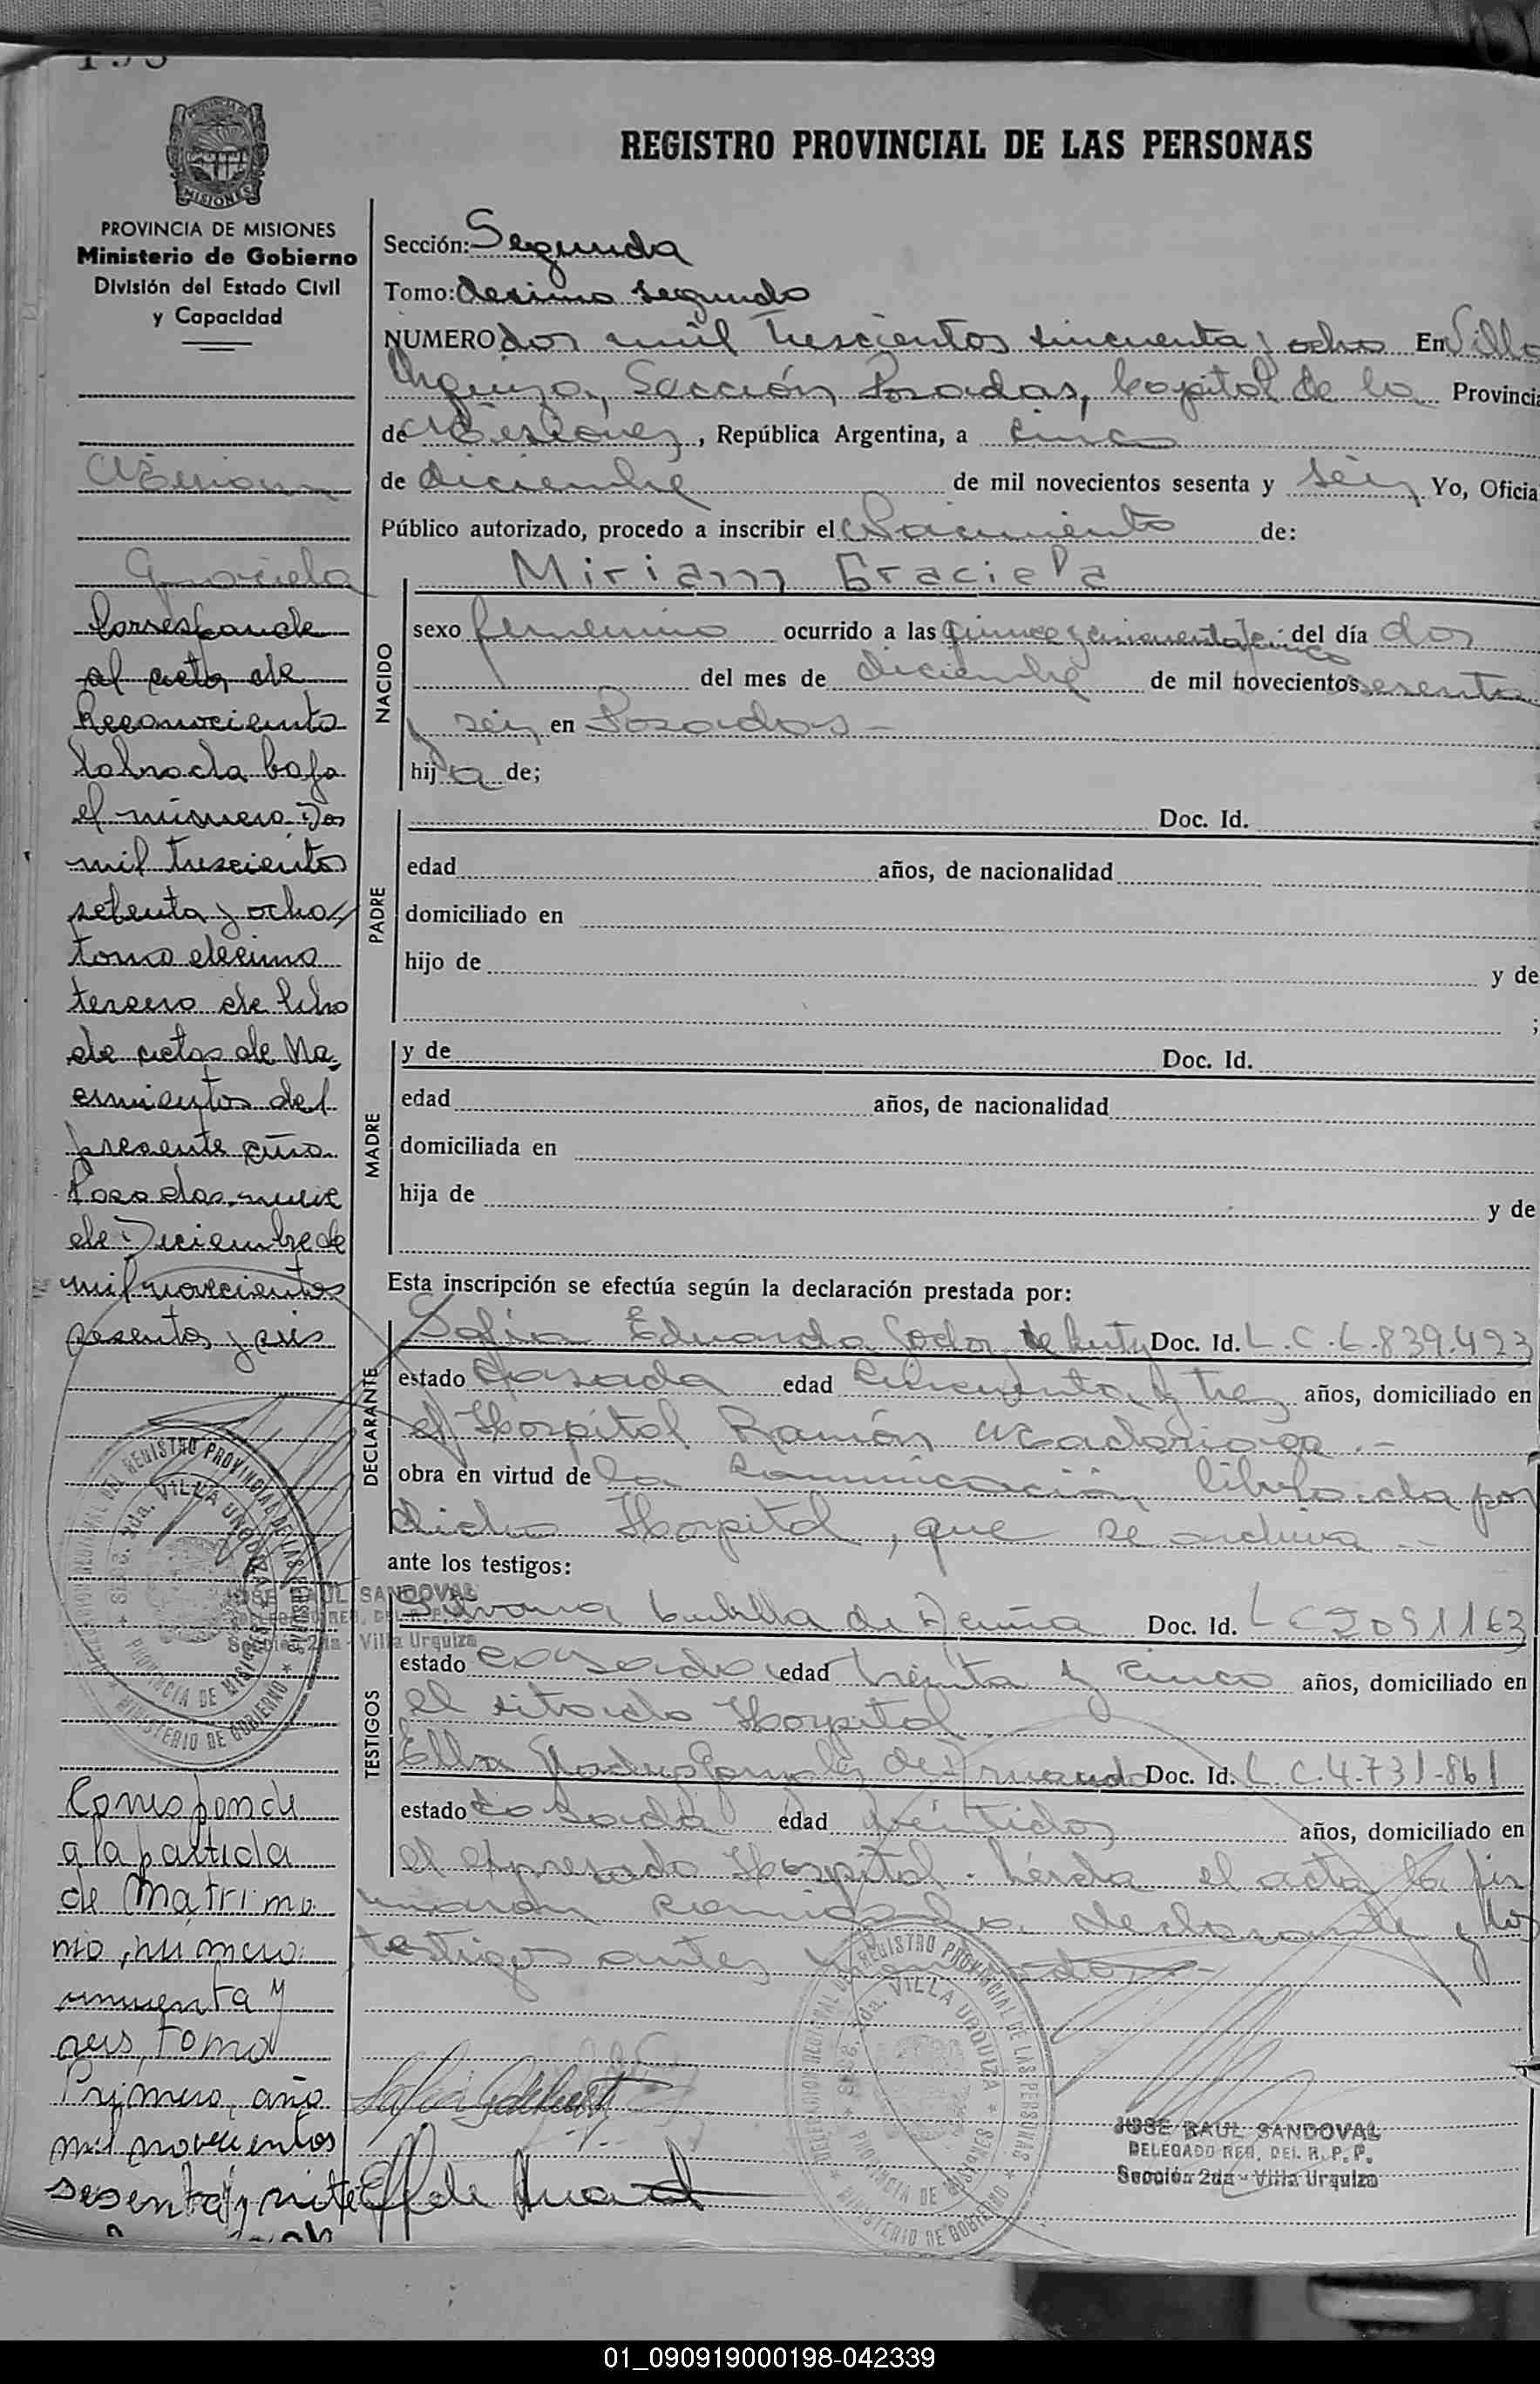 MISIONES
PROVINCIA DE MISIONES
Ministerio de Gobierno
División del Estado Civil
y Capacidad
REGISTRO PROVINCIAL DE LAS PERSONAS
Sección: Segunda
Tomo: desimo segundo
NUMERO dos mil trescientos sincuenta y ocho En Villa
Urquiza, Sección Posadas, Capital de la Provincia
de Misiones, República Argentina, a cinco
de diciembre de mil novecientos sesenta y seis Yo, Oficia
Público autorizado, procedo a inscribir el Nacimiento de:
NACIDO
Miriam Graciela
sexo femenino ocurrido a las quince y cincuenta y cinco del día dos
del mes de diciembre de mil novecientos sesenta
y seis en Posadas -
hija de;
PADRE
Doc. Id.
edad años, de nacionalidad
domiciliado en
hijo de y de
;
MADRE
y de Doc. Id.
edad años, de nacionalidad
domiciliada en
hija de y de
Esta inscripción se efectúa según la declaración prestada por:
DECLARANTE
Sofia Eduarda de Doc. Id. L.C.6.839.423
estado casada edad cincuenta y tres años, domiciliado en
el Hospital Ramón Madariaga .-
obra en virtud de la comunicación librada por
dicho Hospital, que se archiva .-
ante los testigos:
TESTIGOS
Silvana de Doc. Id. L C 2051163
estado casada edad treinta y cinco años, domiciliado en
el sitado Hospital
Elba de Doc. Id. L.C.4.731.861
estado casada edad veintidos años, domiciliado en
el expresado Hospital. Leída el acta la fir
maron conmigo la declarante y los
testigos antes mencionados
JOSE RAUL SANDOVAL
DELEGADO REG. DEL R. P. P.
Sección 2da - Villa Urquiza
Miriam
Graciela
Corresponde
al acta de
Reconociemto
labrada bajo
el número Dos
mil trescientos
setenta y ocho
tomo decimo
tercero de libro
de actas de Na-
cimientos del
presente año.
Posadas, nueve
de Diciembre de
mil novecientos
sesenta y seis
DELEGACION REGIONAL DEL REGISTRO PROVINCIAL DE LAS PERSONAS
Secc. 2da. VILLA URQUIZA
PROVINCIA DE MISIONES
MINISTERIO DE GOBIERNO
JOSE RAUL SANDOVAL
DELEGADO REG. DEL R. P. P.
Sección 2da - Villa Urquiza
Corresponde
a la partida
de Matrimo
nio, numero
cincuenta y
seis, tomo
Primero, año
mil novecientos
sesenta y siete
DELEGACION REGIONAL DEL REGISTRO PROVINCIAL DE LAS PERSONAS
Secc. 2da. VILLA URQUIZA
PROVINCIA DE MISIONES
MINISTERIO DE GOBIERNO
01_090919000198-042339